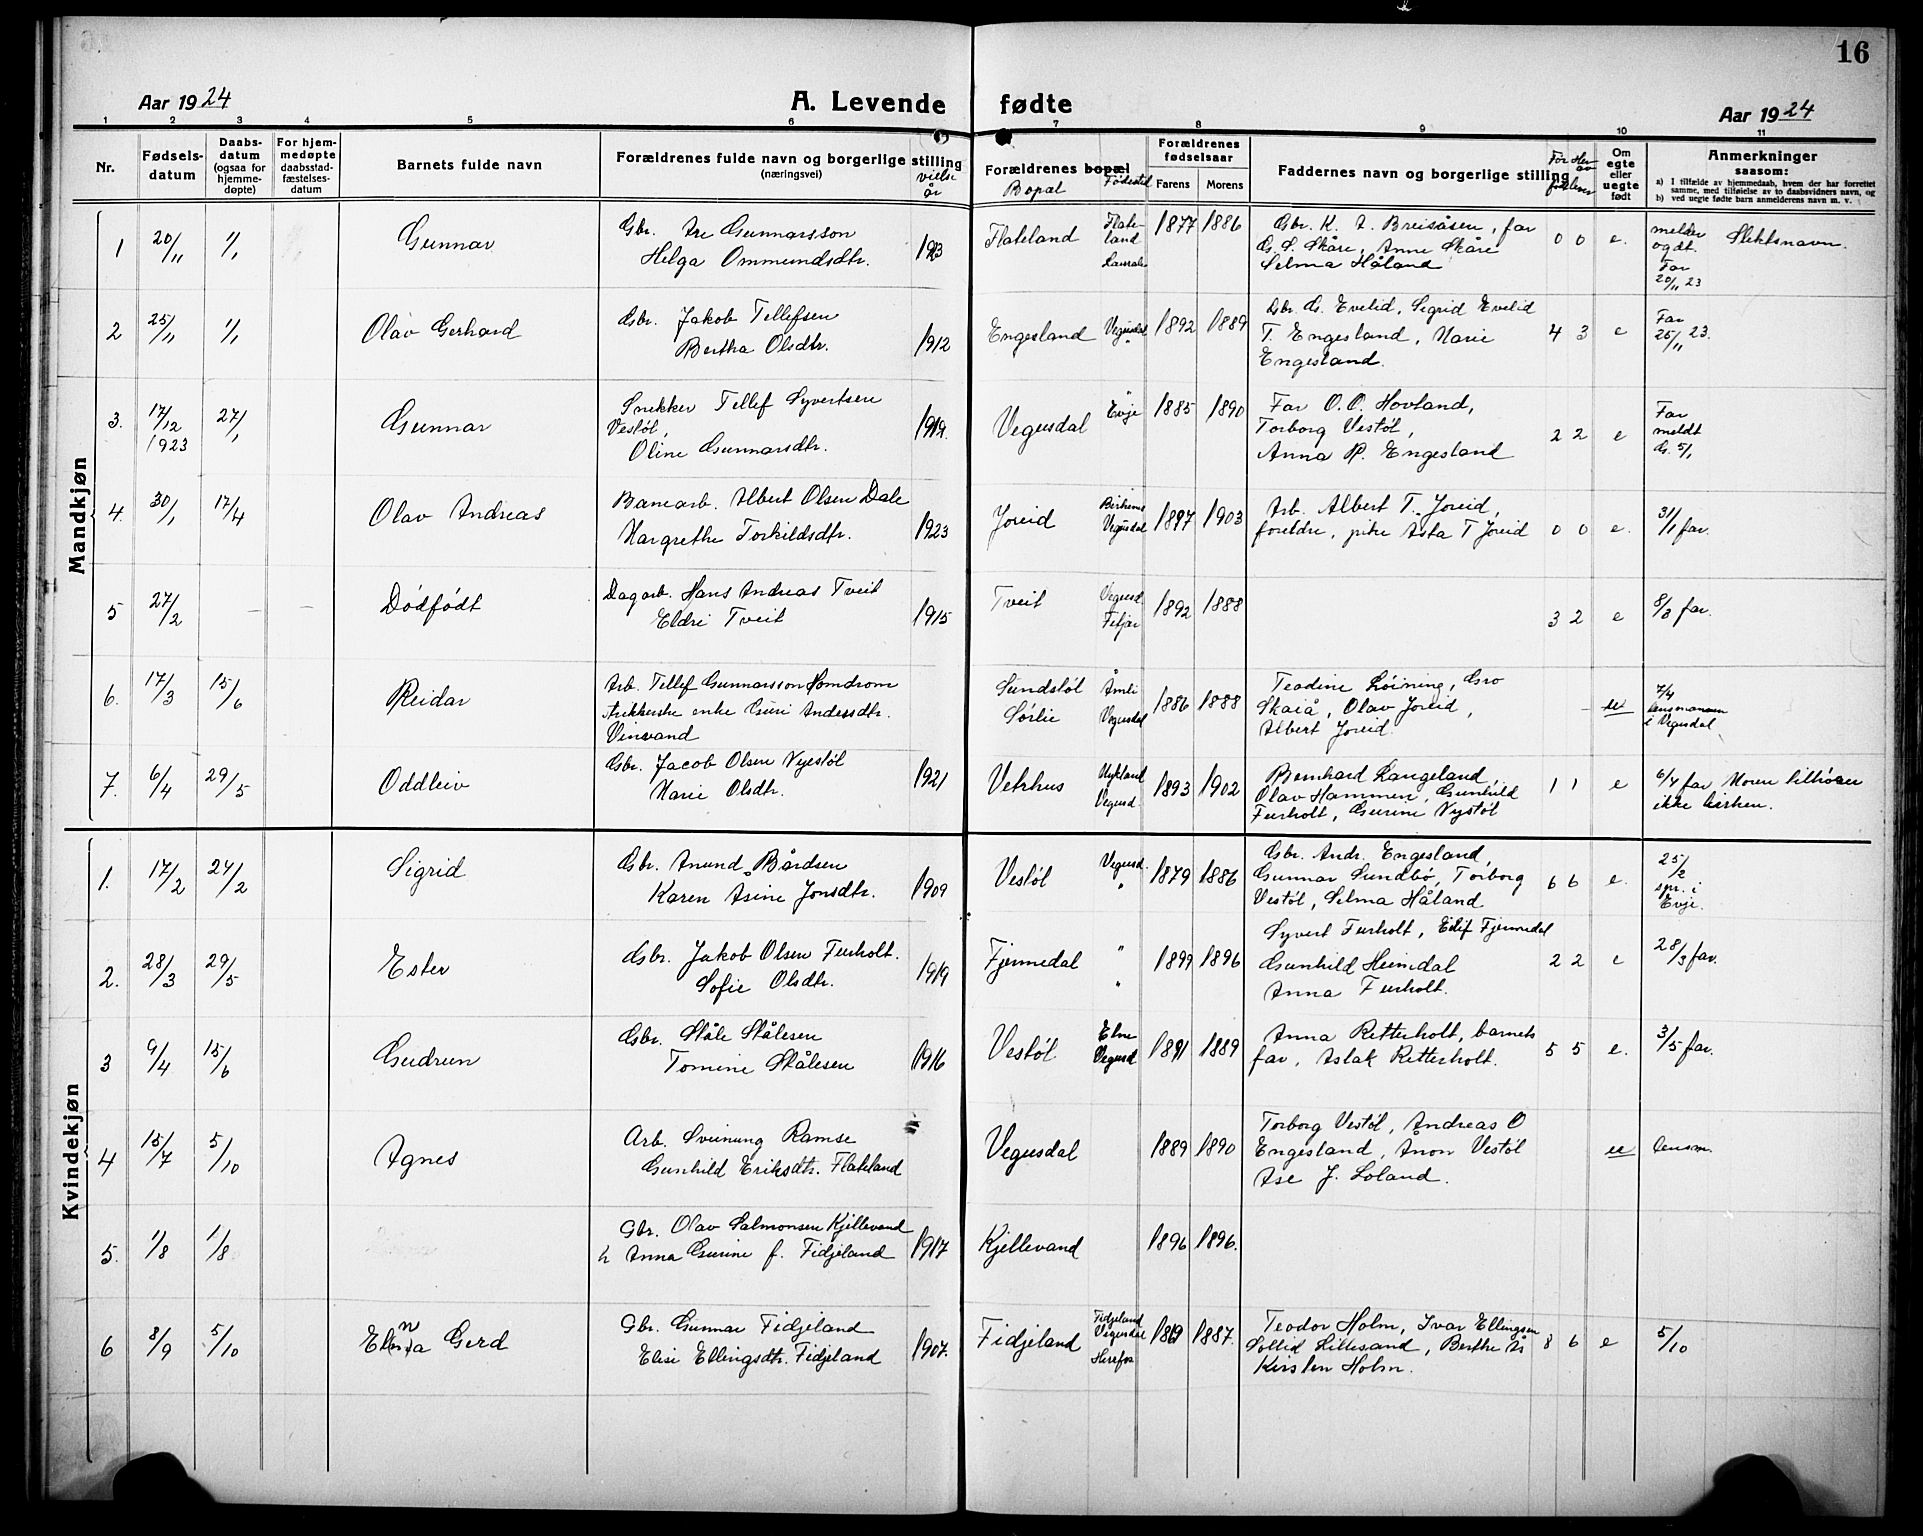 16
Aar 1924 A. Levende fødte Aar 1924
1 2 3 4 5 6 7 8 9 10 11
Nr. Fødsels-datum Daabs-datum (ogsaa for hjemme-døpte) For hjem-medøpte daabsstad-fæstelses-datum Barnets fulde navn Forældrenes fulde navn og borgerlige stilling (næringsvei) vielse år Forældrenes bopæl Bopæl Fødested Forældrenes fødselsaar Farens Morens Faddernes navn og borgerlige stilling Om egte eller uegte født Anmerkninger saasom:
a) I tilfælde av hjemmedaab, hvem der har forrettet samme, med tilføielse av to daabsvidners navn, og
b) ved uegte fødte barn anmelderens navn m. v.
Mandkjøn
1 20/11 1/1 Gunnar Gbr. Are Gunnarsson
Helga Ommundsdtr. 1923 Flateland Flate-land 1877 1886 Gbr. K. A. Breisåsen, far
G. S. Skåre, Anne Skåre
Selma Håland 0 0 e. melder ogdt. Slektsnavn.
Far
20/11 23
2 25/11 1/1 Olav Gerhard Gbr. Jakob Tellefsen
Bertha Olsdtr. 1912 Engesland Vegusdal " 1892 1889 Gbr. G. Evelid, Sigrid Evelid
T. Engesland, Marie
Engesland. 4 3 e Far
25/11 23.
3. 17/12 1923 27/1 Gunnar Snekker Tellef Syvertsen
Vestøl,
Oline Gunnarsdtr. 1919. Vegusdal Evje 1885 1890 Far O. O. Hovland,
Torborg Vestøl,
Anna P. Engesland 2 2 e Far
meldt
d. 5/1
4. 30/1 17/4 Olav Andreas Banearb. Albert Olsen Dale
Margrethe Torkildsdtr. 1923 Joreid Birkenes
Vegusdal 1897 1903 Arb. Albert T. Joreid,
foreldre, pike Asta T Joreid 0 0 e. 31/1 far.
5 27/2 - - Dødfødt Dagarb. Hans Andreas Tveit
Eldri Tveit 1915 Tveit Vegusd
Fitjar 1892 1888 3 2 e 8/3 far.
6. 17/3 15/6 Reidar Arb. Tellef Gunnarsson Homdrom
enke Guri Andersdtr.
Vinvand Sundsløl
Sørlie Åmli
Vegusdal 1886 1888 Teodine Løining, Gro
Skaiå, Olav Joreid,
Albert Joreid. - ue 7/4
lensmannen
i Vegusdal
7. 6/4 29/5 Oddleiv Gbr. Jacob Olsen Nystøl
Marie Olsdtr. 1921 Vetrhus Mykland
Vegusd. 1893 1902 Bernhard Langeland,
Olav Hammen, Gunhild
Furholt, Gurine Nystøl 1 1 e 6/4 far Moren tilhører
ikke kirken.
Kvindekjøn
1. 17/2 24/2 Sigrid Gbr. Anund Bårdsen
Karen Asine Jonsdtr. 1909 Vestøl Vegusd.
" 1879 1886 Gbr. Andr. Engesland,
Gunnar Sundbø, Torborg
Vestøl, Selma Håland 6 6 e. 25/2
spr. i
Evje.
2. 28/3 29/5 Ester Gbr. Jakob Olsen Furholt.
Sofie Olsdtr. 1919 Fjermedal "
" 1899 1896 Syvert Furholt, Eilif Fjermedal
Gunhild Heimdal
Anna Furholt. 2 2 e 28/3 far.
3 9/4 15/6 Gudrun Gbr. Ståle Stålesen
Tomine Stålesen 1916 Vestøl Vegusd 1891 1889 Anna Retterholt, barnets
far, Aslak Retterholt. 5 5 e. 3/5 far.
4 15/7 5/10 Agnes Arb. Sveinung Ramse
Gunhild Eriksdtr. Flateland Vegusdal 1889 1890 Torborg Vestøl, Andreas O
Engesland, Anon Vestøl
Ase J. Loland. ue lensm.
5. 1/8 1/8 Gbr. Olav Salmonsen Kjellevand
h Anna Gurine f. Fidjeland 1917 Kjellevand 1896 1896.
6 8/9 5/10 Elenna Gerd Gbr. Gunnar Fidjeland
Elise Ellingsdtr. Fidjeland 1907. Fidjeland Fidjeland
Vegusdal
Herefos 1887. Teodor Holm, Ivar Ellingsen
Sollid Lillesand, Berthe
Kirsten Holm. 8 6 e 5/10